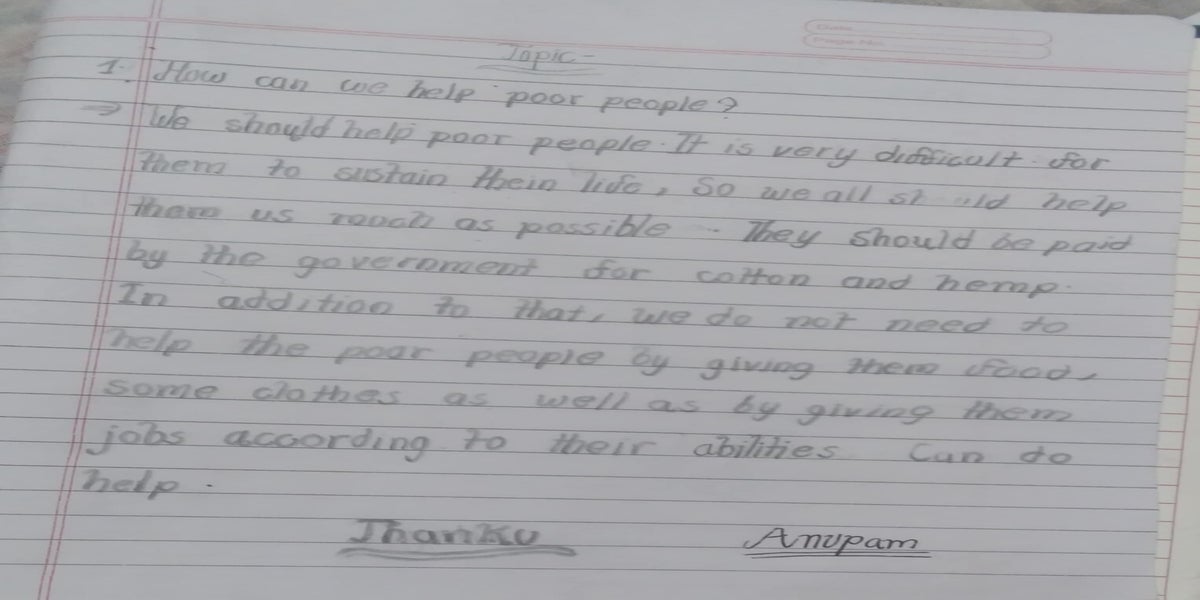 Date
Page No.
Topic -
1. How can we help poor people?
⇒ We should help poor people. It is very difficult for
them to sustain thein life, So we all should help
them us much as possible. They should be paid
by the government for cotton and hemp.
In addition to that, we do not need to
help the poor people by giving them food,
some clothes as well as by giving them
jobs according to their abilities Can do
help.
ThankU Anupam